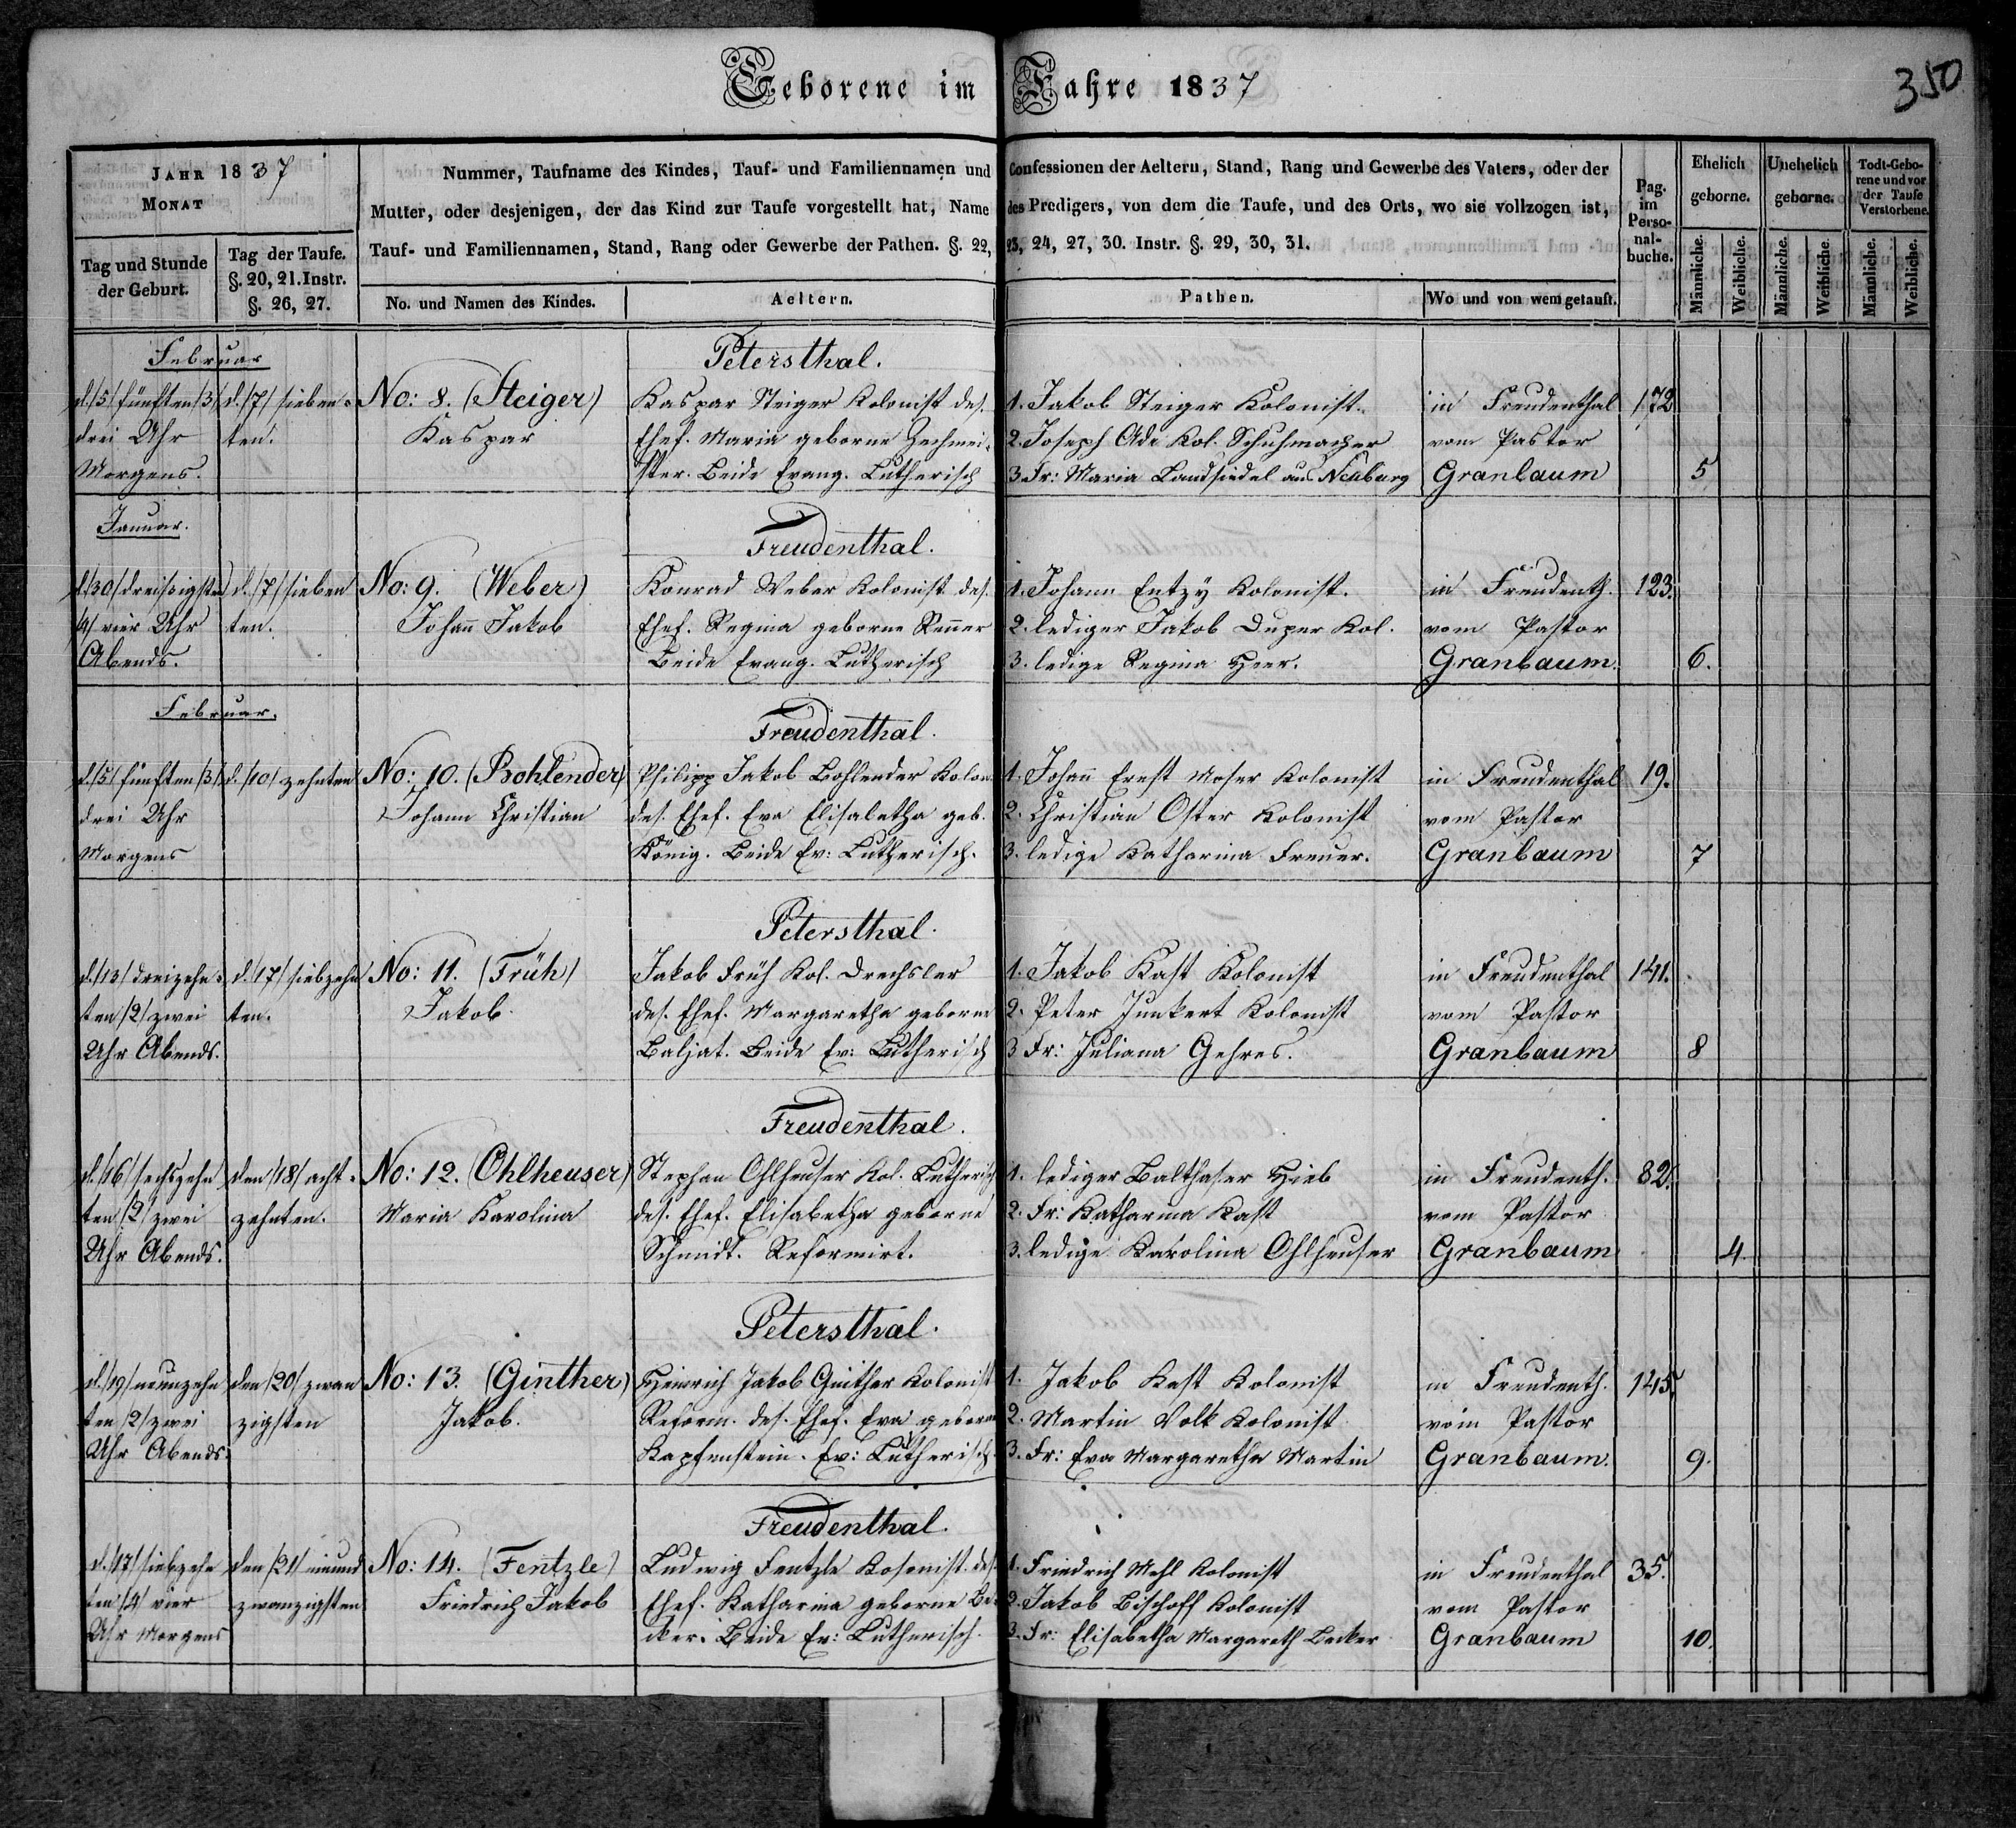 Geborene im Jahre 1837
350
JAHR 1837
MONAT
Tag und Stunde der Geburt.
Tag der Taufe. §. 20, 21. Instr. §. 26, 27.
Nummer, Taufname des Kindes, Tauf- und Familiennamen und Confessionen der Aeltern, Stand, Rang und Gewerbe des Vaters, oder der
Mutter, oder desjenigen, der das Kind zur Taufe vorgestellt hat, Name des Predigers, von dem die Taufe, und des Orts, wo sie vollzogen ist,
Tauf- und Familiennamen, Stand, Rang oder Gewerbe der Pathen. §. 22, 23, 24, 27, 30. Instr. §. 29, 30, 31.
No. und Namen des Kindes.
Aeltern.
Pathen.
Wo und von wem getauft.
Pag. im Perso-nal-buche.
Ehelich geborne.
Unehelich geborne.
Todt-Gebo-rene und vor der Taufe Verstorbene.
Männliche. Weibliche. Männliche. Weibliche. Männliche. Weibliche.
Februar
Petersthal.
d. /5/ fünften /3/ d. /7/ sieben- No: 8. (Steiger) Kaspar Steiger Kolonist des. 1. Jakob Steiger Kolonist. in Freudenthal 172
drei Uhr ten. Kaspar Ehef. Maria geborne Zechmei- 2. Joseph Ade Kol. Schuhmacher vom Pastor
Morgens. ster. Beide Evang. Lutherisch 3. Fr: Maria Landsiedel aus Neuburg Granbaum 5
Januar.
Freudenthal.
d. /30/ dreißigsten d. /7/ sieben No: 9. (Weber) Konrad Weber Kolonist des. 1. Johann Entzy Kolonist. in Freudenth. 123.
/4/ vier Uhr ten. Johann Jakob Ehef. Regina geborne Renner 2. lediger Jakob Duper Kol. vom Pastor
Abends. Beide Evang. Lutherisch 3. ledige Regina Heer. Granbaum. 6.
Februar.
Freudenthal.
d. /5/ fünften /3/ d. /10/ zehnten No: 10. (Bohlender) Philipp Jakob Bohlender Kolon. 1. Johann Ernst Moser Kolonist in Freudenthal 19.
drei Uhr Johann Christian des. Ehef. Eva Elisabetha geb. 2. Christian Oster Kolonist vom Pastor
Morgens König. Beide Ev: Lutherisch. 3. ledige Katharina Freuer. Granbaum 7
Petersthal.
d. /13/ dreizehn- d. /17/ siebzehn No: 11. (Früh) Jakob Früh Kol. Drechsler 1. Jakob Kast Kolonist in Freudenthal 141.
ten /2/ zwei ten. Jakob. des. Ehef. Margaretha geborne 2. Peter Junkert Kolonist vom Pastor
Uhr Abends. Baljat. Beide Ev: Lutherisch 3 Fr: Juliana Gehres. Granbaum 8
Freudenthal.
d. /16/ sechszehn den /18/ acht- No: 12. (Ohlheuser) Stephan Ohlheuser Kol. Lutherisch 1. lediger Balthaser Hieb in Freudenth. 82.
ten /2/ zwei zehnten. Maria Karolina des. Ehef. Elisabetha geborne 2. Fr: Katharina Kast vom Pastor
Uhr Abends. Schmidt. Reformirt. 3. ledige Karolina Ohlheuser Granbaum 4.
Petersthal.
d. /19/ neunzehn den /20/ zwan No: 13. (Ginther) Heinrich Jakob Ginther Kolonist 1. Jakob Kast Kolonist in Freudenth. 145.
ten /2/ zwei zigsten Jakob. Reform. des. Ehef. Eva geborne 2. Martin Volk Kolonist vom Pastor
Uhr Abends. Kapfenstein. Ev: Lutherisch. 3. Fr: Eva Margaretha Martin Granbaum. 9.
Freudenthal.
d. /17/ siebzehn den /21/ einund No: 14. (Fentzle) Ludwig Fentzle Kolonist des. 1. Friedrich Mehl Kolonist in Freudenthal 35.
ten /4/ vier zwanzigsten Friedrich Jakob Ehef. Katharina geborne Be- 2. Jakob Bischoff Kolonist vom Pastor
Uhr Morgens cker. Beide Ev: Lutherisch. 3. Fr: Elisabetha Margareth Becker Granbaum 10.